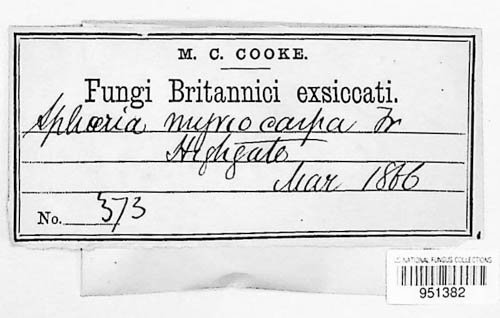 M. C. COOKE.
Fungi Britannici exsiccati.
Sphæria myriocarpa Fr
Highgate
Mar 1866
No. 373
US NATIONAL FUNGUS COLLECTIONS
951382